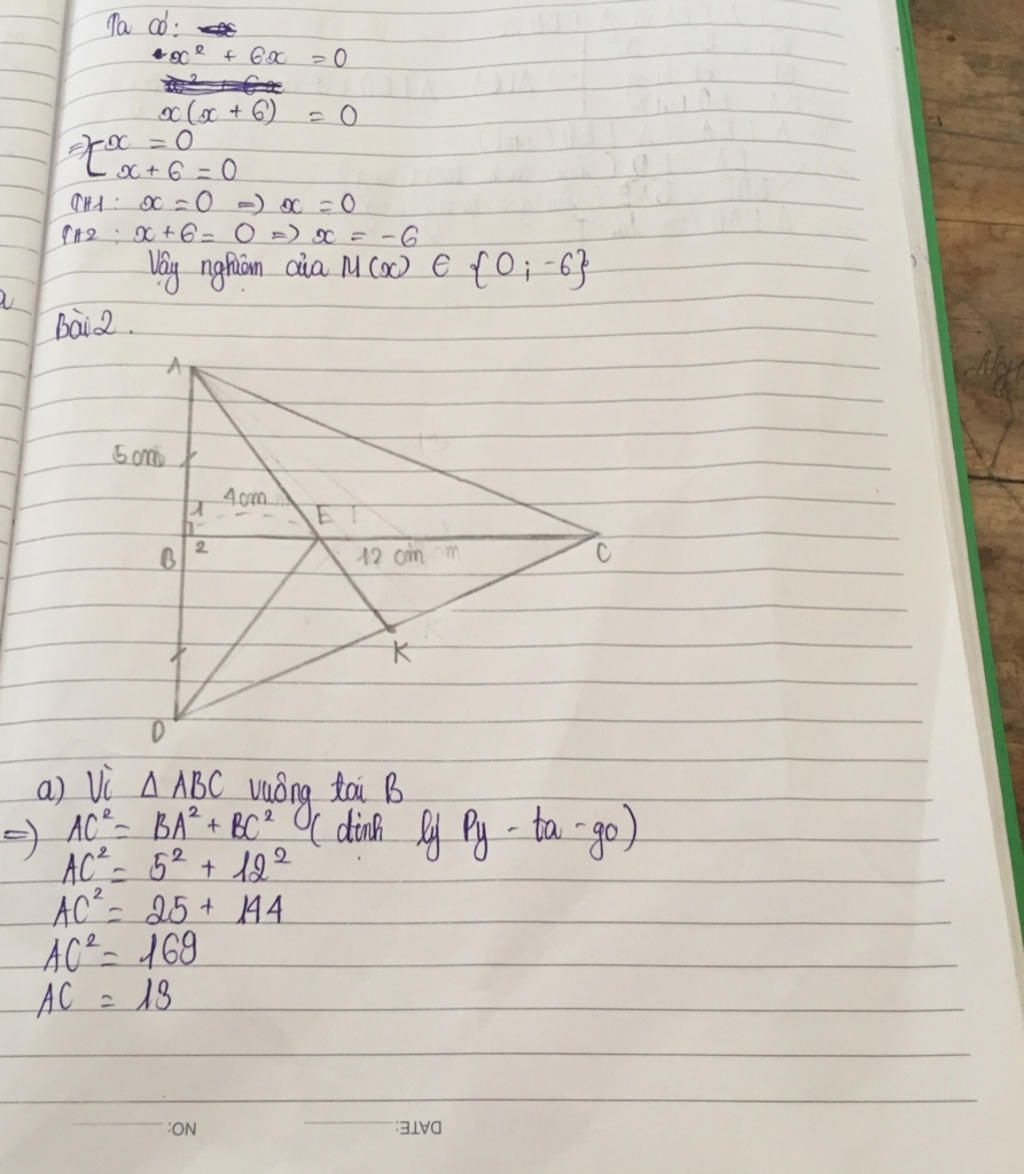 Ta có:
x² + 6x = 0
x(x + 6) = 0
=> [ x = 0
x + 6 = 0
TH1: x = 0 => x = 0
TH2: x + 6 = 0 => x = -6
Vậy nghiệm của M(x) ∈ {0; -6}
Bài 2.
A
5cm
1 4cm E
B 2 12 cm C
K
D
a) Vì Δ ABC vuông tại B
=) AC² = BA² + BC² (định lý Py - ta - go)
AC² = 5² + 12²
AC² = 25 + 144
AC² = 169
AC = 13
NO: DATE: